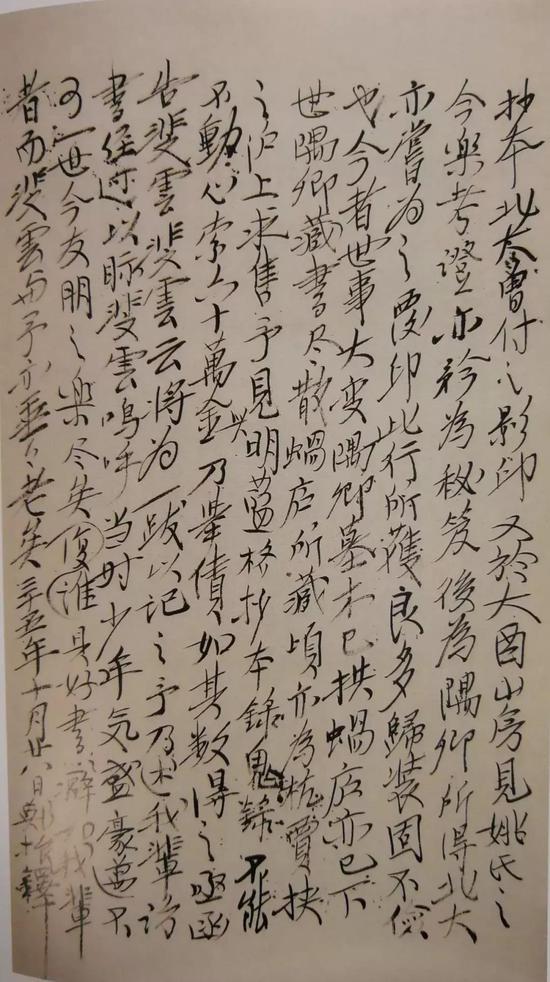 抄本北大曾付之影印又於大酉山房見姚氏之
今樂考證亦矜為秘笈後為隅卿所得北大
亦嘗為之覆印此行所獲良多歸裝固不儉
也今者世事大变隅卿墓木已拱蝸庐亦已下
世隅卿藏書尽散蝸庐所藏頃亦為杭賈挾
之沪上求售予見明蓝格抄本錄鬼簿不能
不動心索六十萬金乃举債如其数得之亟函
告斐雲斐雲云将为一跋以记之予乃述我輩访
書往迹以眎斐雲嗚呼当时少年气盛豪邁不
可一世今友朋之樂尽失復誰具好書之癖如我輩
者而斐雲与予亦垂垂老矣三十五年十月廿八日鄭振鐸